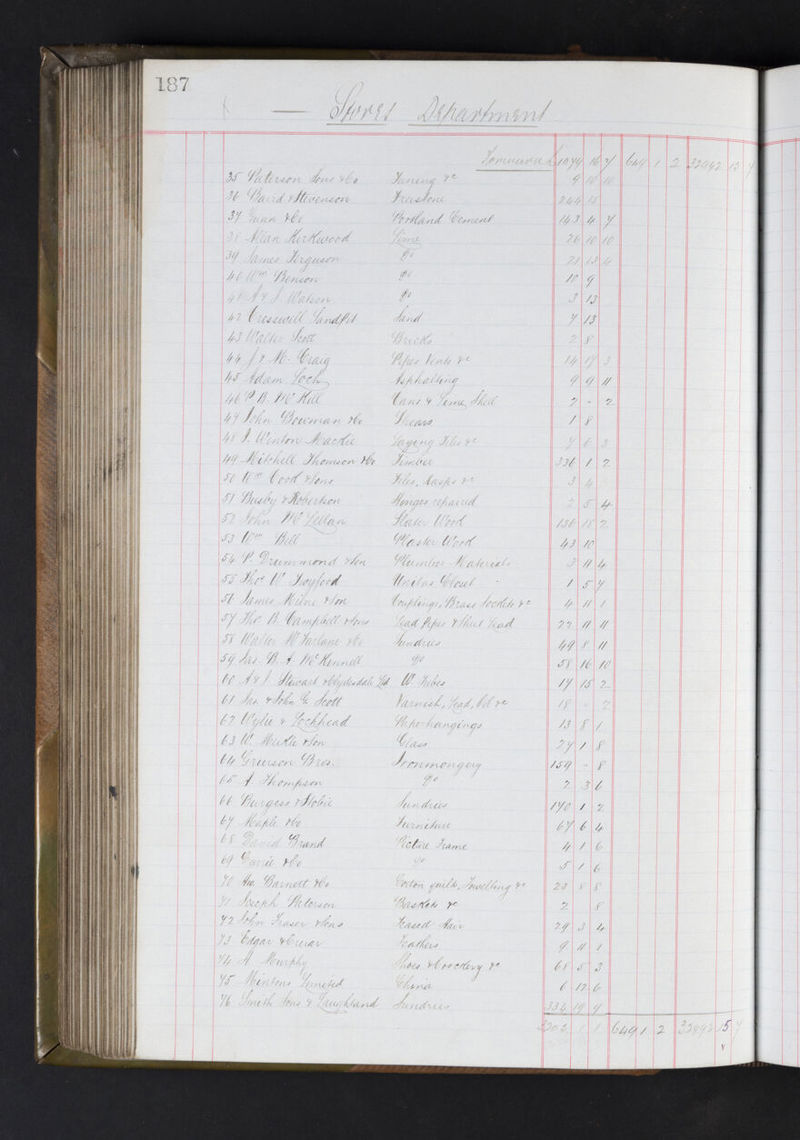 187
Stores Department
Forward £1074 16 7 649 1 2 32942 15 7
35 Paterson Sons & Co Tuning &c 9 10 10
36 Baird & Stevenson Freestone 244 15
37 & Co Portland Cement 143 4 7
38 Allan Kirkwood Lime 26 10 10
39 James Ferguson Do 21 13 6
40 Wm Benson Do 10 9
41 A & J. Watson Do 3 13
42 Cresswell Sandpit Sand 7 13
43 Walter Scott Bricks 2 8
44 J & M. Craig Pipes Vents &c 14 17 3
45 Adam Loch Asphalting 9 9 11
46 P. B. McKill Cans & Lime Shed 7 - 2
47 John Bowman & Co Shears 1 8
48 J. Winton Mackie Laying Tiles &c 7 6 3
49 Mitchell Thomson & Co Timber 336 1 2
50 Wm Cook & Sons Files, Hasps &c 3 4
51 Busby & Robertson Hinges repaired 2 5 4
52 John McLellan Slater Work 136 15 2
53 Wm Bell Plaster Work 43 10
54 P. Drummond & Son Plumber Materials 3 11 4
55 Thos W Twyford Unitas Closet - 1 5 7
56 James Milne & Son Couplings, Brass Sockets &c 4 11 1
57 Thos B. Campbell & Sons Lead Pipes & Sheet Lead 22 11 11
58 Walter McFarlane & Co Sundries 49 8 11
59 Jas. B. A. McKinnell Do 58 16 10
60 A & J Stewart & Clydesdale Ld W. Tubes 17 15 2
61 Jas. & John G. Scott Varnish, Lead, Oil &c 18 - 2
62 Wylie & Lochhead Paperhangings 13 8 1
63 W. Meikle & Son Glass 27 1 8
64 Grierson Bros. Ironmongery 159 - 8
65 A. Thompson Do 2 3 6
66 Burgess & Stobie Sundries 170 1 2
67 Maple & Co Furniture 67 6 4
68 David Brand Picture Frame 4 1 6
69 & Co Do 5 1 6
70 Barnett & Co Cotton quilts, Towelling &c 23 8 8
71 Joseph Paterson Baskets &c 2 8
72 John Fraser & Sons Teased Hair 29 3 4
73 Edgar & Crerar Feathers 9 11 1
74 A. Murphy Shoes & Crockery &c 61 5 3
75 Mintons Limited China 6 12 6
76 Smith Sons & Laughland Sundries 334 19 9
3202 1 1 649 1 2 32942 15 7